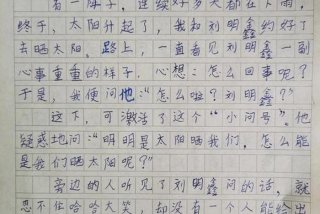 有一阵子，连续好多天都在下雨，
终于，太阳升起了，我和刘明鑫约好了
去晒太阳。路上，一直看见刘明鑫一副
心事重重的样子，心想：怎么回事呢？
于是，我便问他：“怎么啦？刘明鑫？”
这下，可激活了这个“小问号”他
疑惑地问：“明明是太阳晒我们，怎么能
是我们晒太阳呢？”
旁边的人听见了刘明鑫问的话，就
忍不住哈哈大笑，却没有一个人能给出